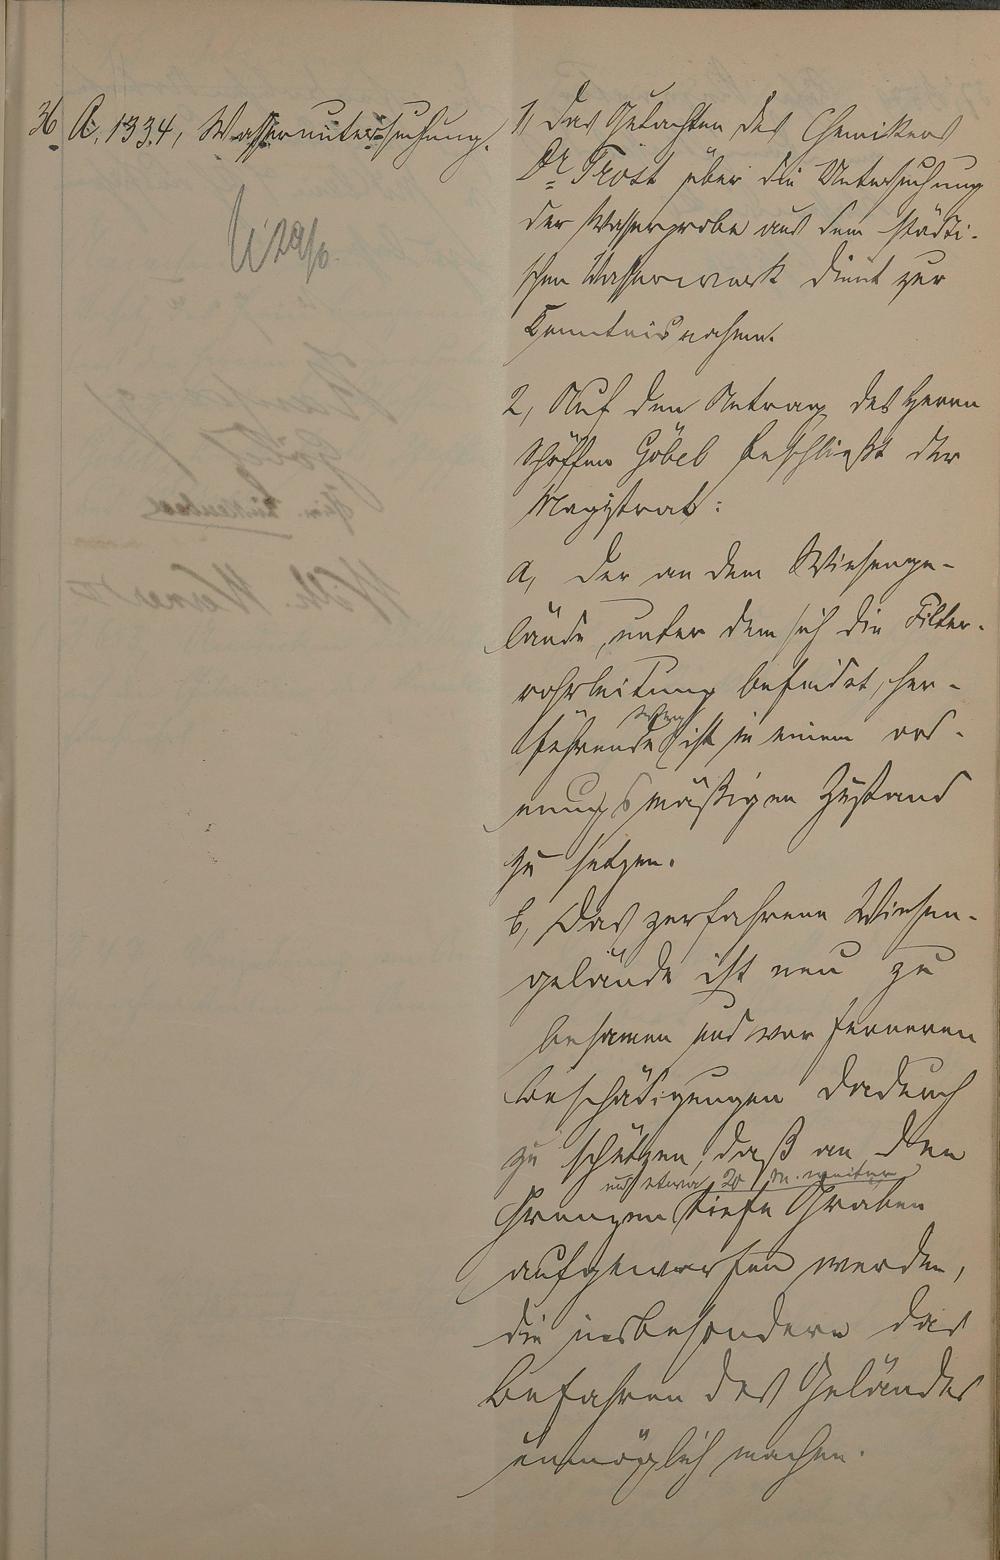 36 A. 1334, Wasseruntersuchung.
1, Das Gutachten des Chemikers
Dr Trost über die Untersuchung
der Wasserprobe aus dem städti-
schen Wasserwerk dient zur
Kenntnisnahme.
2, Auf den Antrag des Herrn
Schöffen Göbel beschließt der
Magistrat:
a, der an dem Wiesenge-
lände, unter dem sich die Filter-
rohrleitung befindet, her-
führende Weg ist in einen ord-
nungsmäßigen Zustand
zu setzen.
b, Das zerfahrene Wiesen-
gelände ist neu zu
besamen und vor ferneren
Beschädigungen dadurch
zu schützen, daß an den
Grenzen und etwa 20 m. weiter tiefe Graben
aufgeworfen werden,
die insbesondere das
Befahren des Geländes
unmöglich machen.